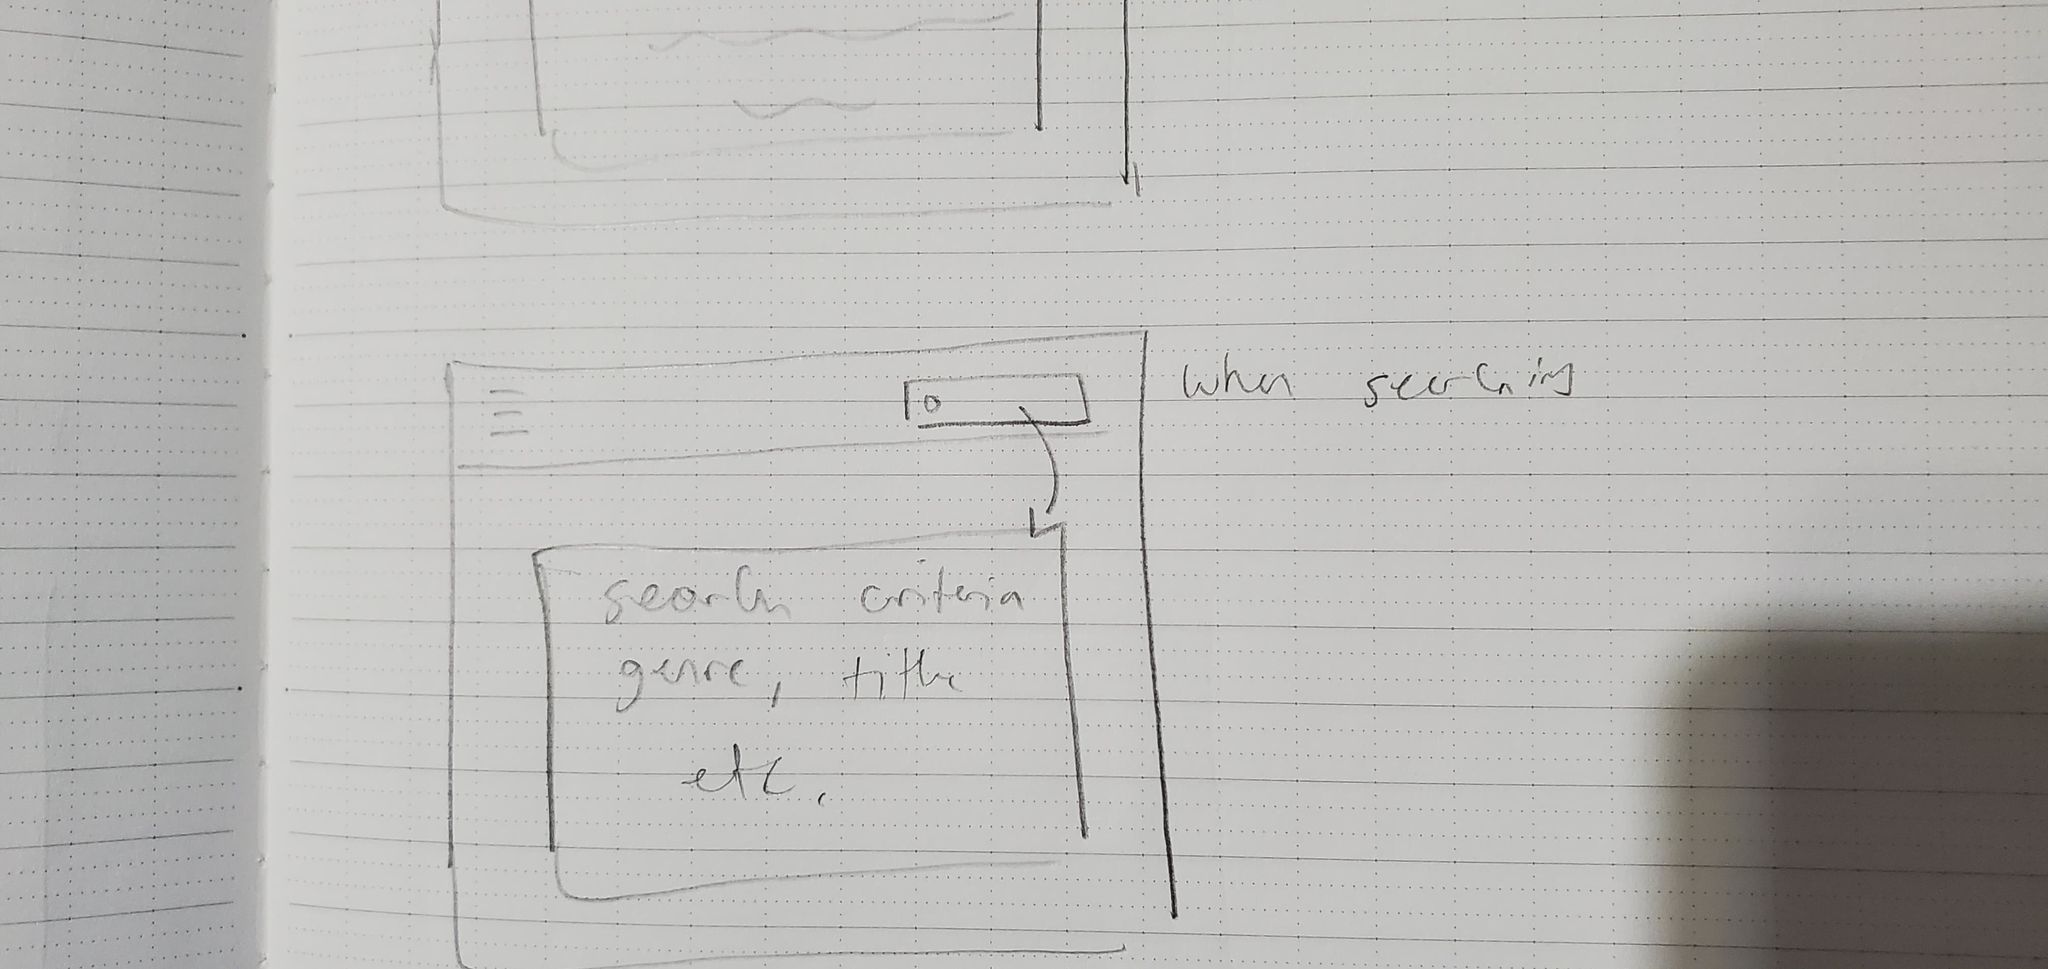 when searching
search criteria
genre, title
etc.